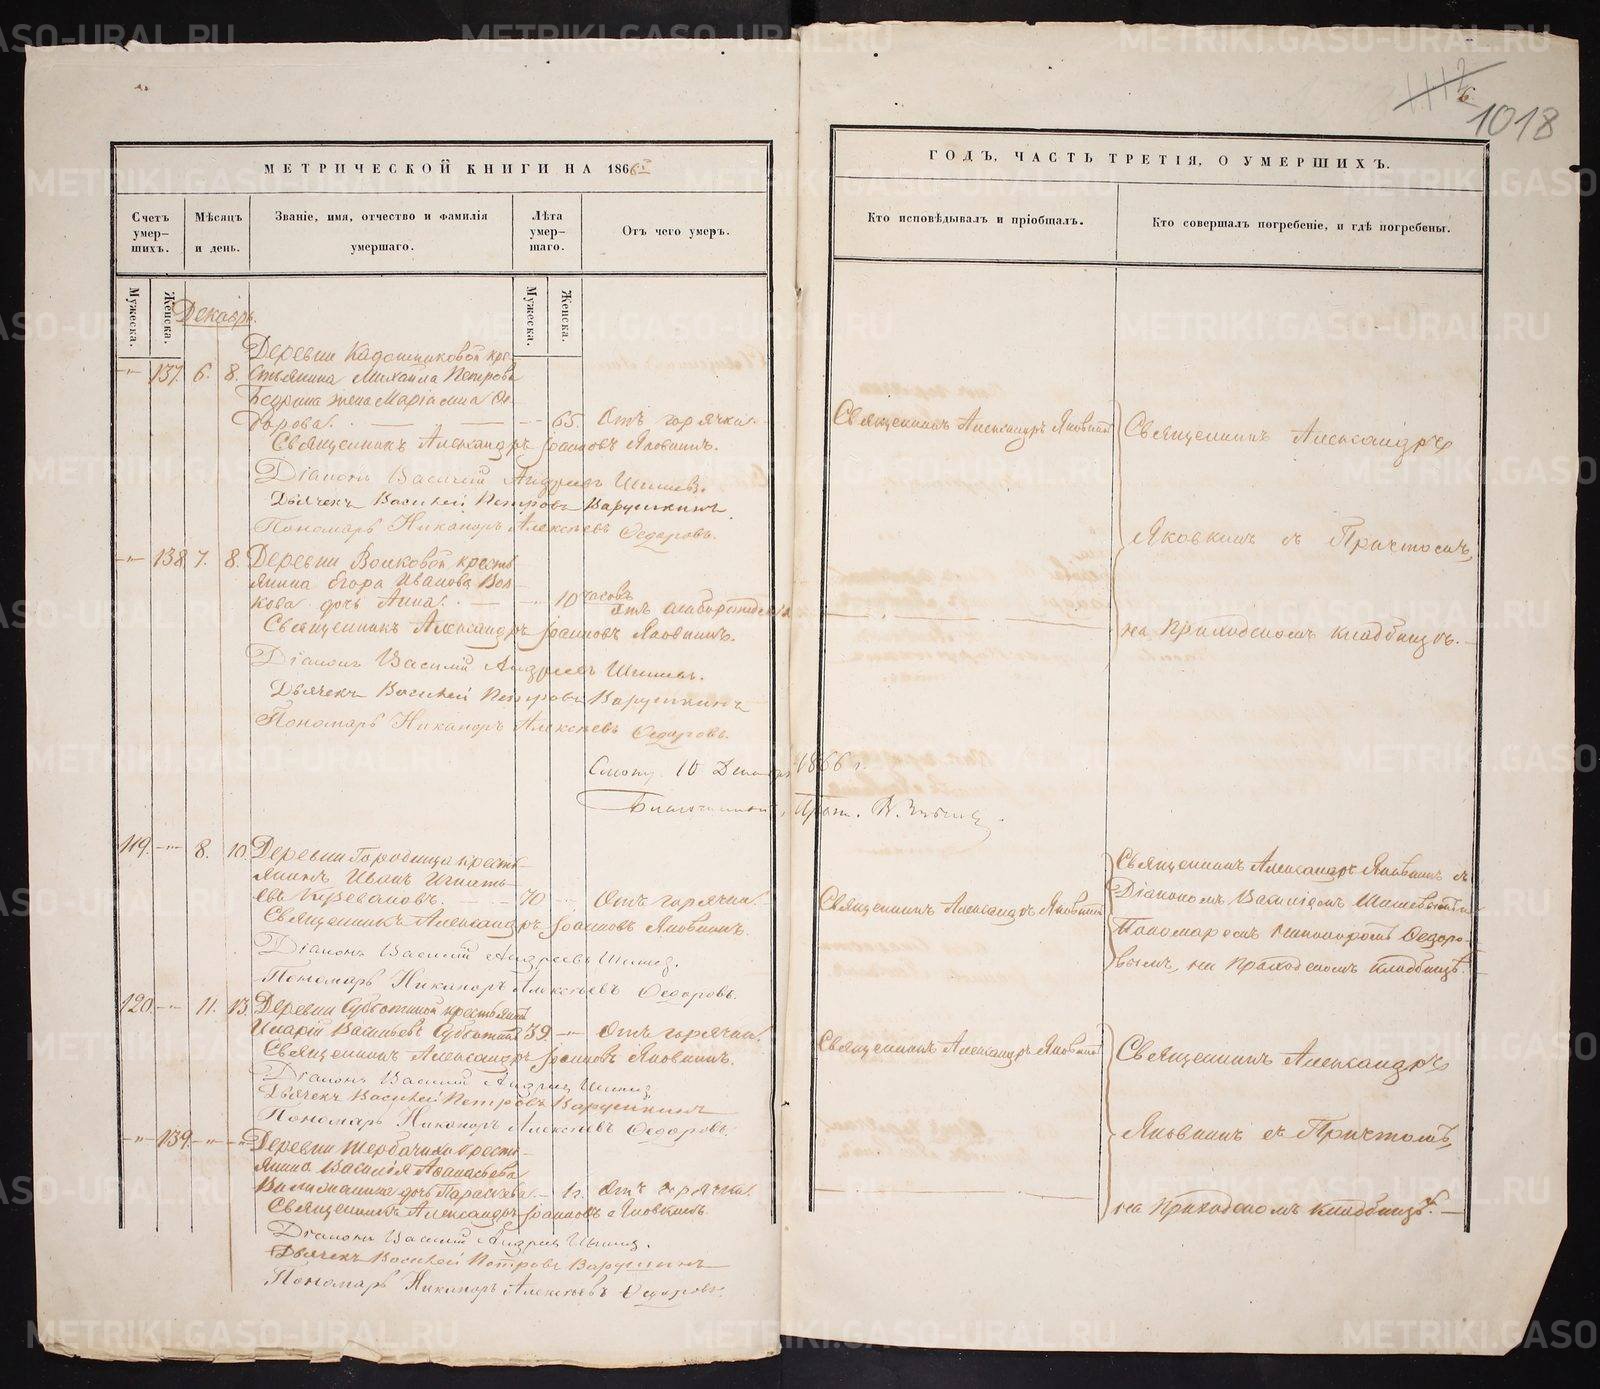 1018
МЕТРИЧЕСКОЙ КНИГИ НА 1866
Счетъ умер-
шихъ.
Мѣсяцъ
и день.
Званіе, имя, отчество и фамилія
умершаго.
Лѣта
умер-
шаго.
Отъ чего умеръ.
Мужеска.
Женска.
Мужеска.
Женска.
Декабрь.
137. 6. 8.
Деревни Кадошниковой кре-
стьянина Михаила Петрова
жена Мар
дорова. 65. Отъ горячки.
Священникъ Александръ Іоанновъ Яковкинъ.
Діаконъ Василій Андреевъ Шишевъ.
Дьячекъ Василей Петровъ Варушкинъ
Пономарь Никаноръ Алексѣевъ Ѳедоровъ.
138 7. 8. Деревни Волковой кресть
янина Егора Иванова Вол
кова дочь Анна. 10 часовъ
отъ слабости
Священникъ Александръ Іоанновъ Яковкинъ.
Діаконъ Василій Андреевъ Шишевъ.
Дьячекъ Василей Петровъ Варушкинъ
Пономарь Никаноръ Алексѣевъ Ѳедоровъ.
10 Декабря 1866 г.
Благочинный, Прот.
119. 8. 10. Деревни Городища кресть-
янинъ Иванъ Игнать-
евъ 70 Отъ горячки.
Священникъ Александръ Іоанновъ Яковкинъ.
Діаконъ Василій Андреевъ Шишевъ.
Пономарь Никаноръ Алексѣевъ Ѳедоровъ.
120. 11. 13. Деревни Субботиной крестьянинъ
Иларій Васильевъ Субботинъ 39 Отъ горячки.
Священникъ Александръ Іоанновъ Яковкинъ.
Діаконъ Василій Андреевъ Шишевъ
Дьячекъ Василей Петровъ Варушкинъ
Пономарь Никаноръ Алексѣевъ Ѳедоровъ.
139. Деревни кресть-
янина Василія Аѳанасьева
дочь Параскева 1 г. Отъ горячки.
Священникъ Александръ Іоанновъ Яковкинъ.
Діаконъ Василій Андреевъ Шишевъ.
Дьячекъ Василей Петровъ Варушкинъ
Пономарь Никаноръ Алексѣевъ Ѳедоровъ.
ГОДЪ, ЧАСТЬ ТРЕТІЯ, О УМЕРШИХЪ.
Кто исповѣдывалъ и пріобщалъ.
Кто совершалъ погребеніе, и гдѣ погребены.
Священникъ Александръ Яковкинъ
Священникъ Александръ
Яковкинъ съ Причтомъ,
на Приходскомъ кладбищѣ.
Священникъ Александръ Яковкинъ
Священникъ Александръ Яковкинъ съ
Діакономъ Василіемъ Шишевымъ и
Пономаремъ Никаноромъ Ѳедоро-
вымъ, на Приходскомъ кладбищѣ.
Священникъ Александръ Яковкинъ
Священникъ Александръ
Яковкинъ съ Причтомъ,
на Приходскомъ кладбищѣ.
METRIKI.GASO-URAL.RU